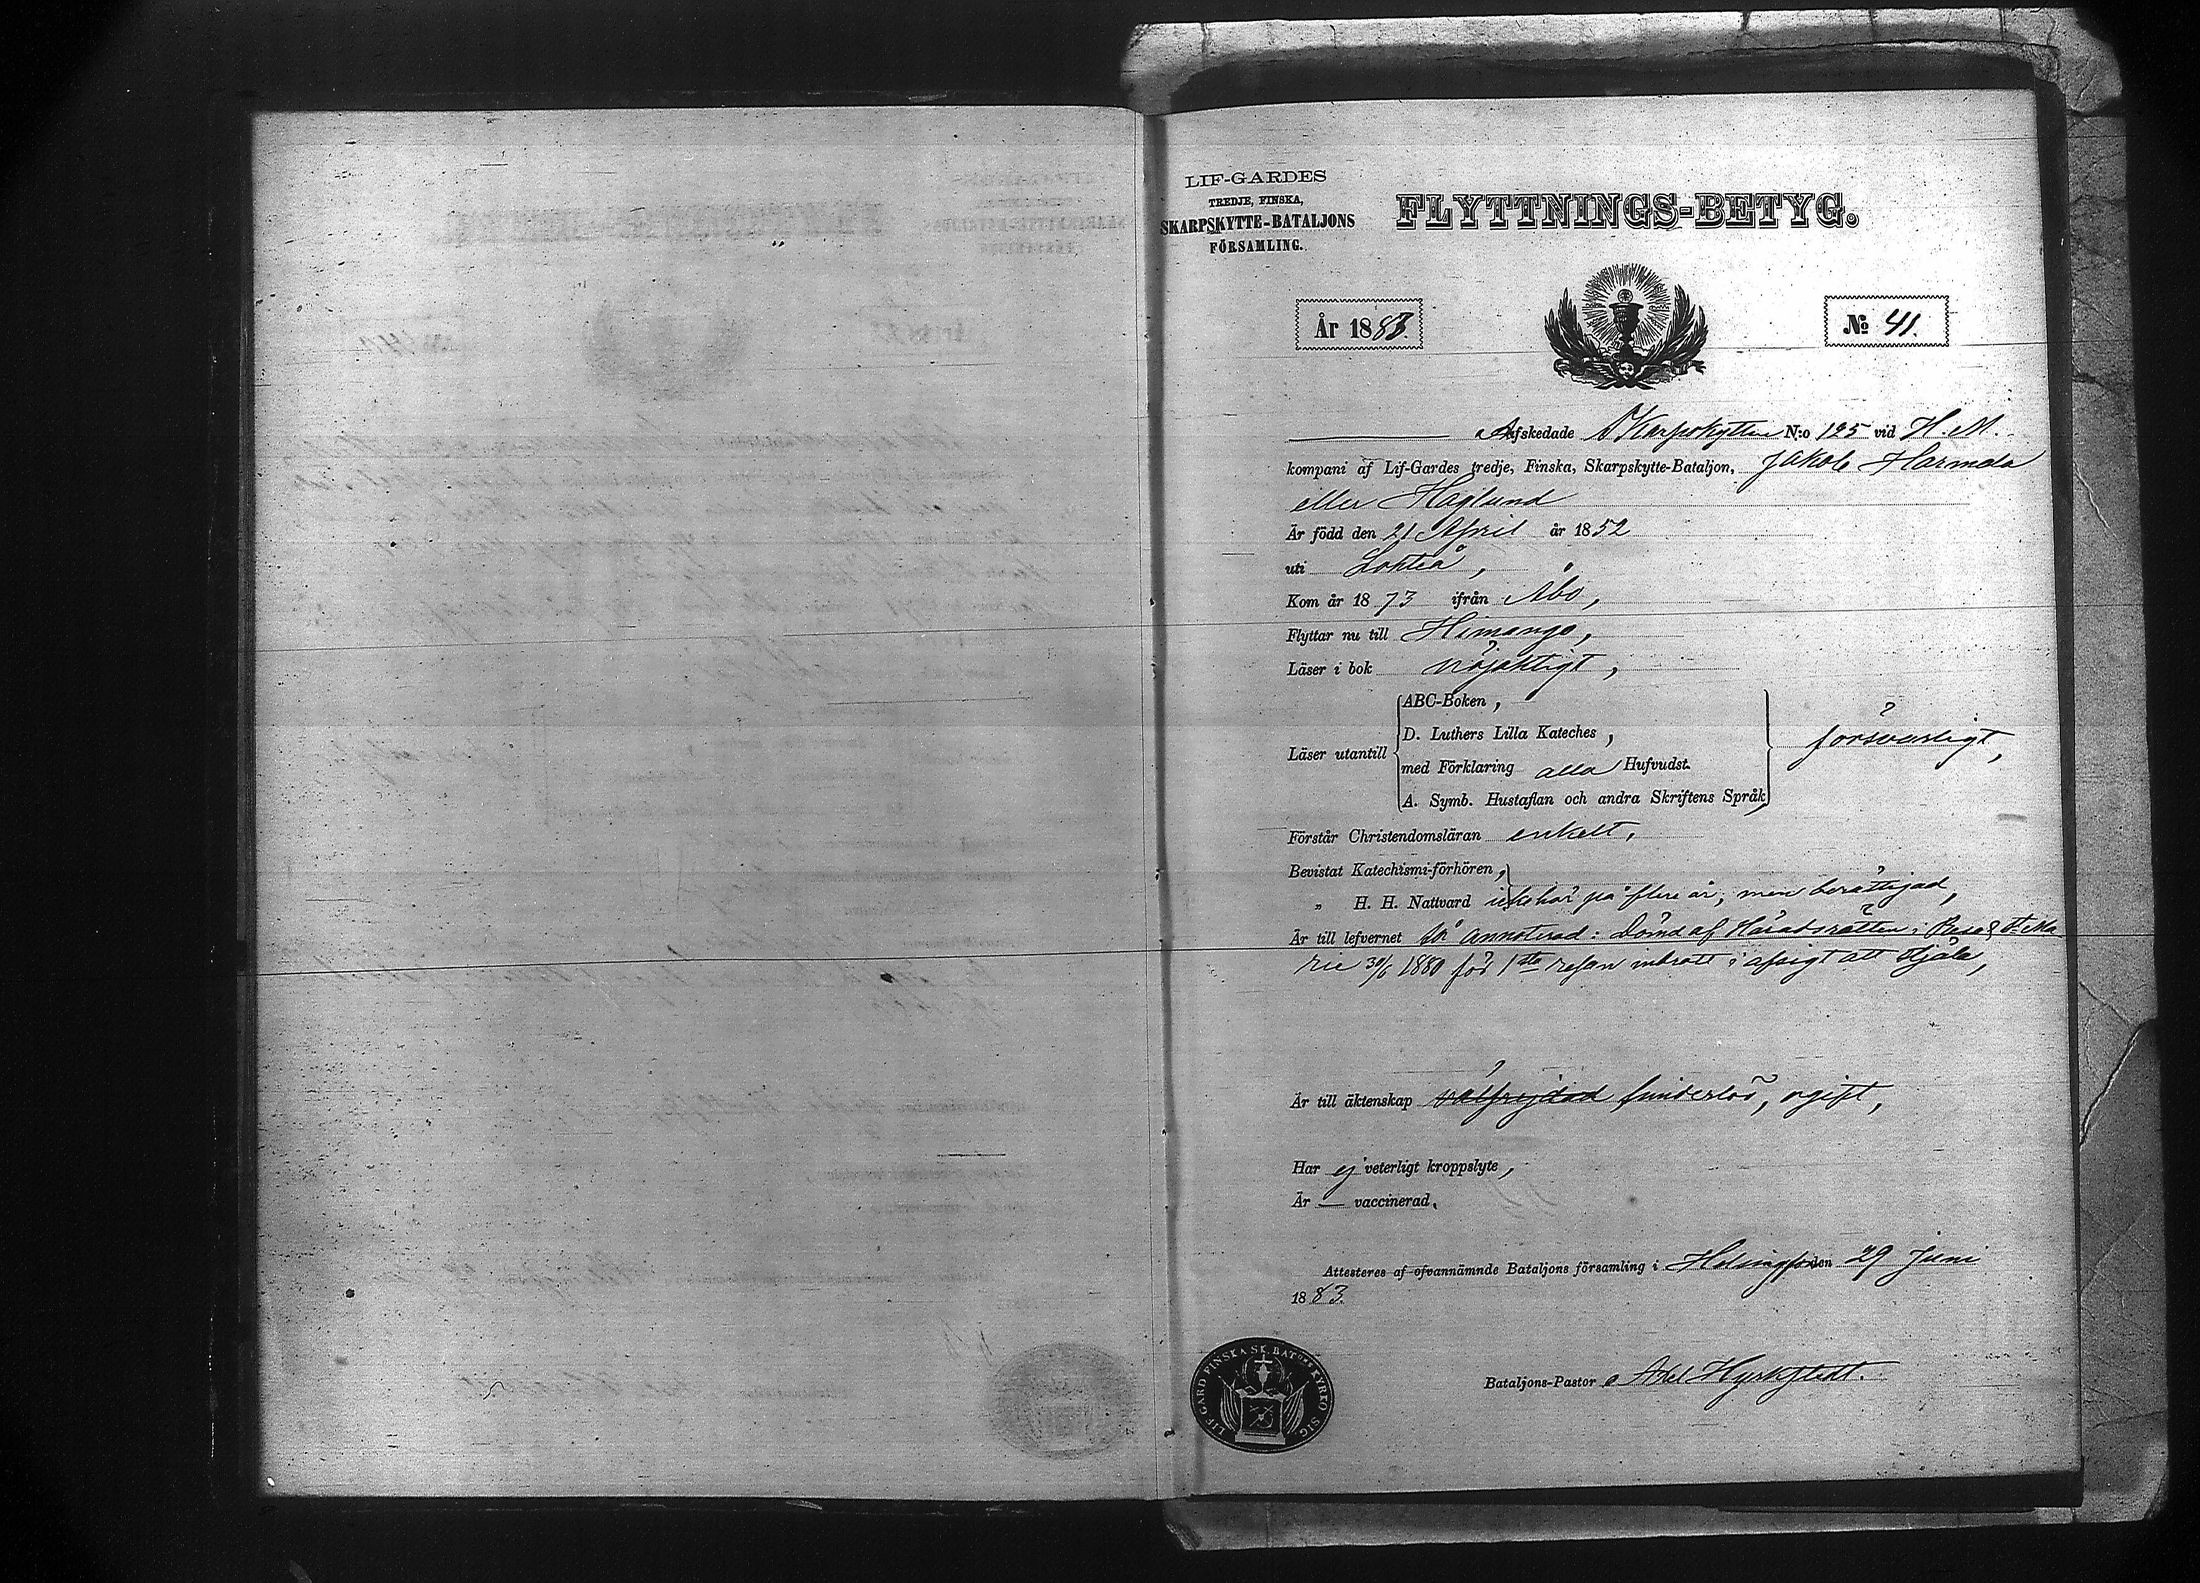 LIF-GARDES
TREDJE, FINSKA,
SKARPSKYTTE-BATALJONS
FÖRSAMLING.
FLYTTNINGS-BETYG.
År 1883.
No 41.
Afskedade Skarpskytten N:o 125 vid H. M.
kompani af Lif-Gardes tredje, Finska, Skarpskytte-Bataljon, Jakob Harmola
eller Haglund
Är född den 21 April år 1852
uti Lohteå,
Kom år 1873 ifrån Åbo,
Flyttar nu till Himango,
Läser i bok nöjaktigt,
Läser utantill
ABC-Boken,
D. Luthers Lilla Kateches,
med Förklaring alla Hufvudst.
A. Symb. Hustaflan och andra Skriftens Språk,
försvarligt,
Förstår Christendomsläran enkelt,
Bevistat Katechismi-förhören,
„ H. H. Nattvard icke här på flere år, men berättigad,
Är till lefvernet så annoterad: Dömd af Häradsrätten i Reso & St. Ma-
rie 30/6 1880 för 1sta resan inbrott i afsigt att stjäla,
Är till äktenskap välfrejdad hinderlös, ogift,
Har ej veterligt kroppslyte,
Är — vaccinerad.
Attesteras af ofvannämnde Bataljons församling i Helsingfors den 29 Juni
1883.
Bataljons-Pastor Axel Hyrkstedt.
LIF GARD FINSKA SK. BATONS KYRKO SIG.